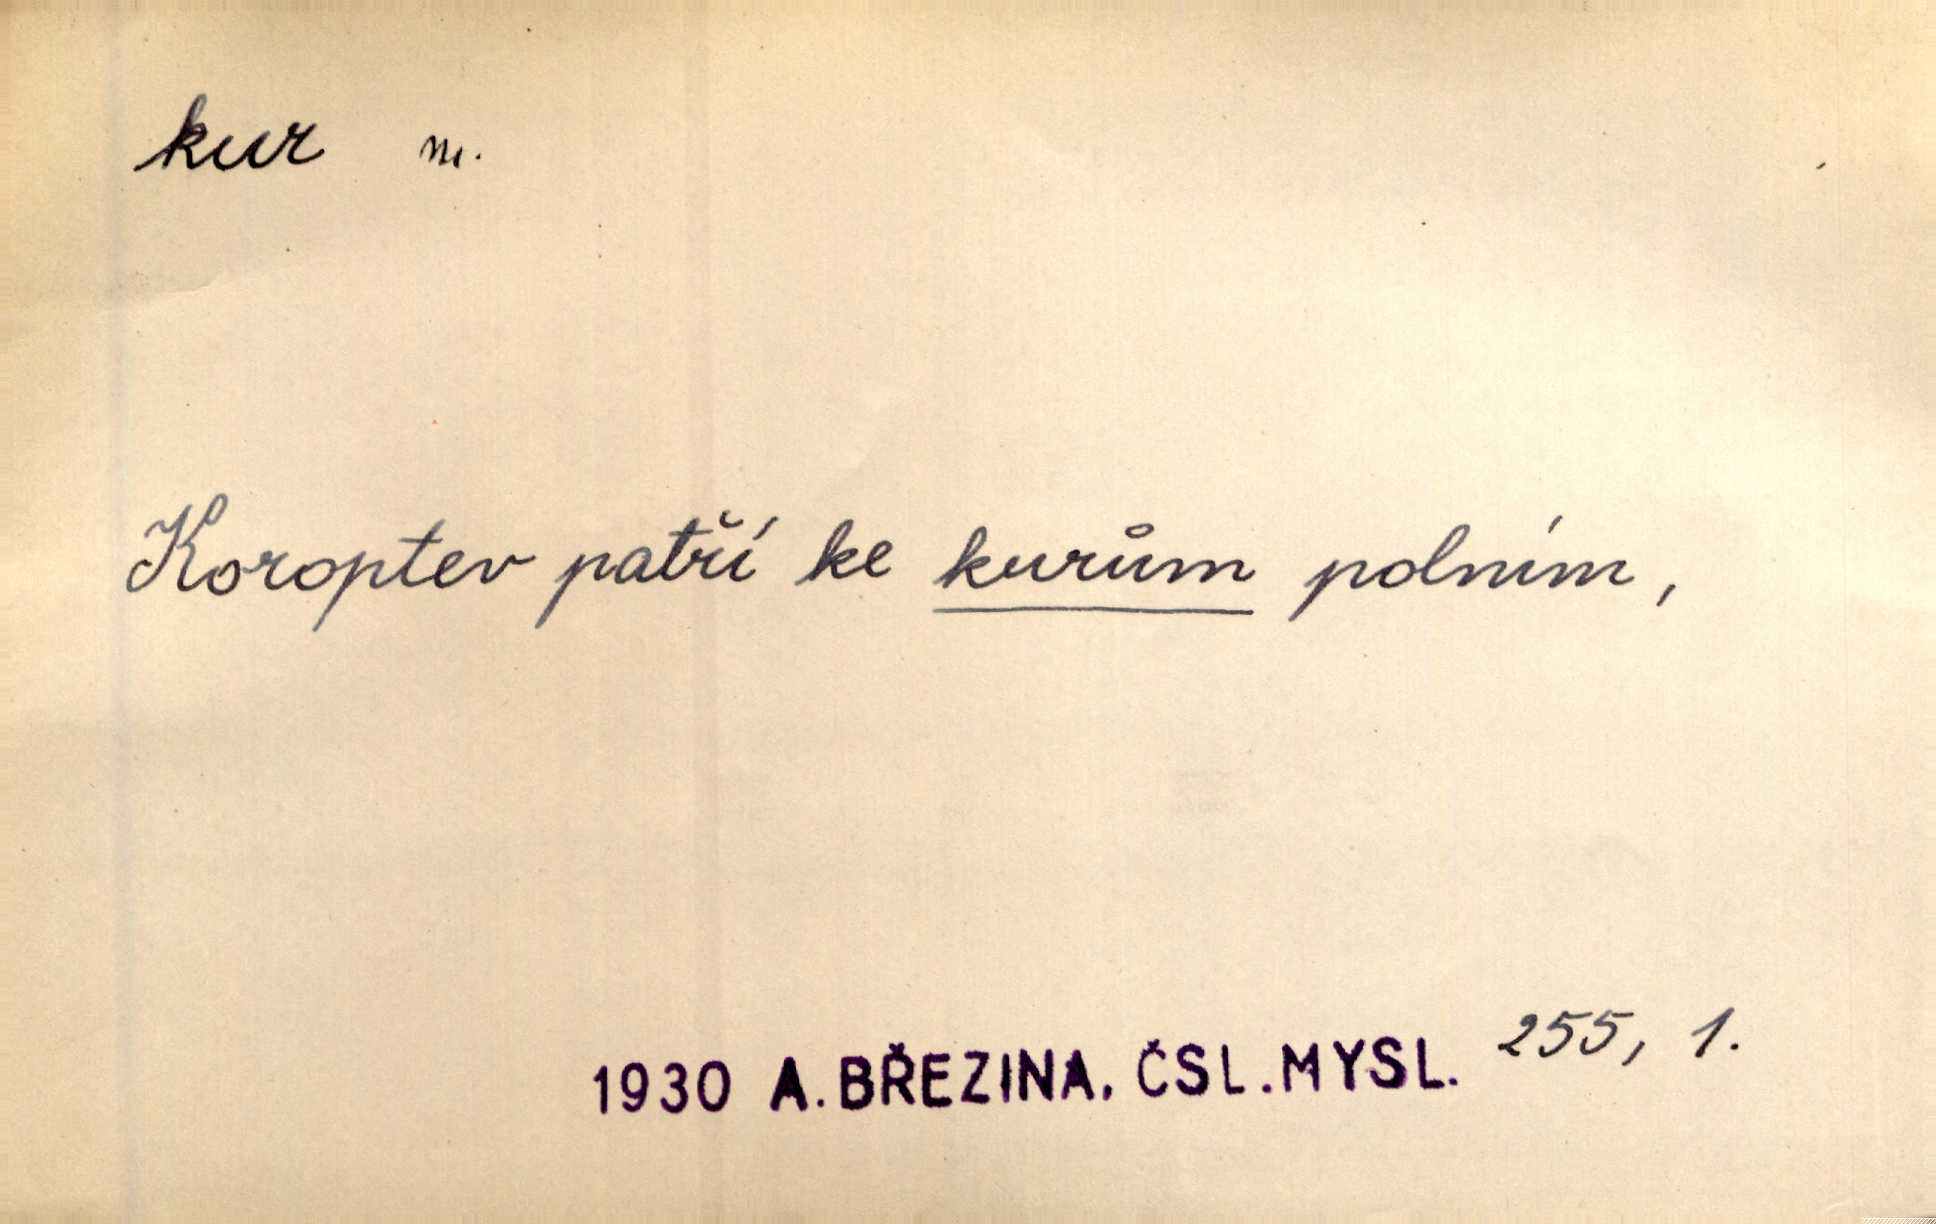 kur m.
Koroptev patří ke kurům polním,
1930 A. BŘEZINA, ČSL. MYSL. 255, 1.